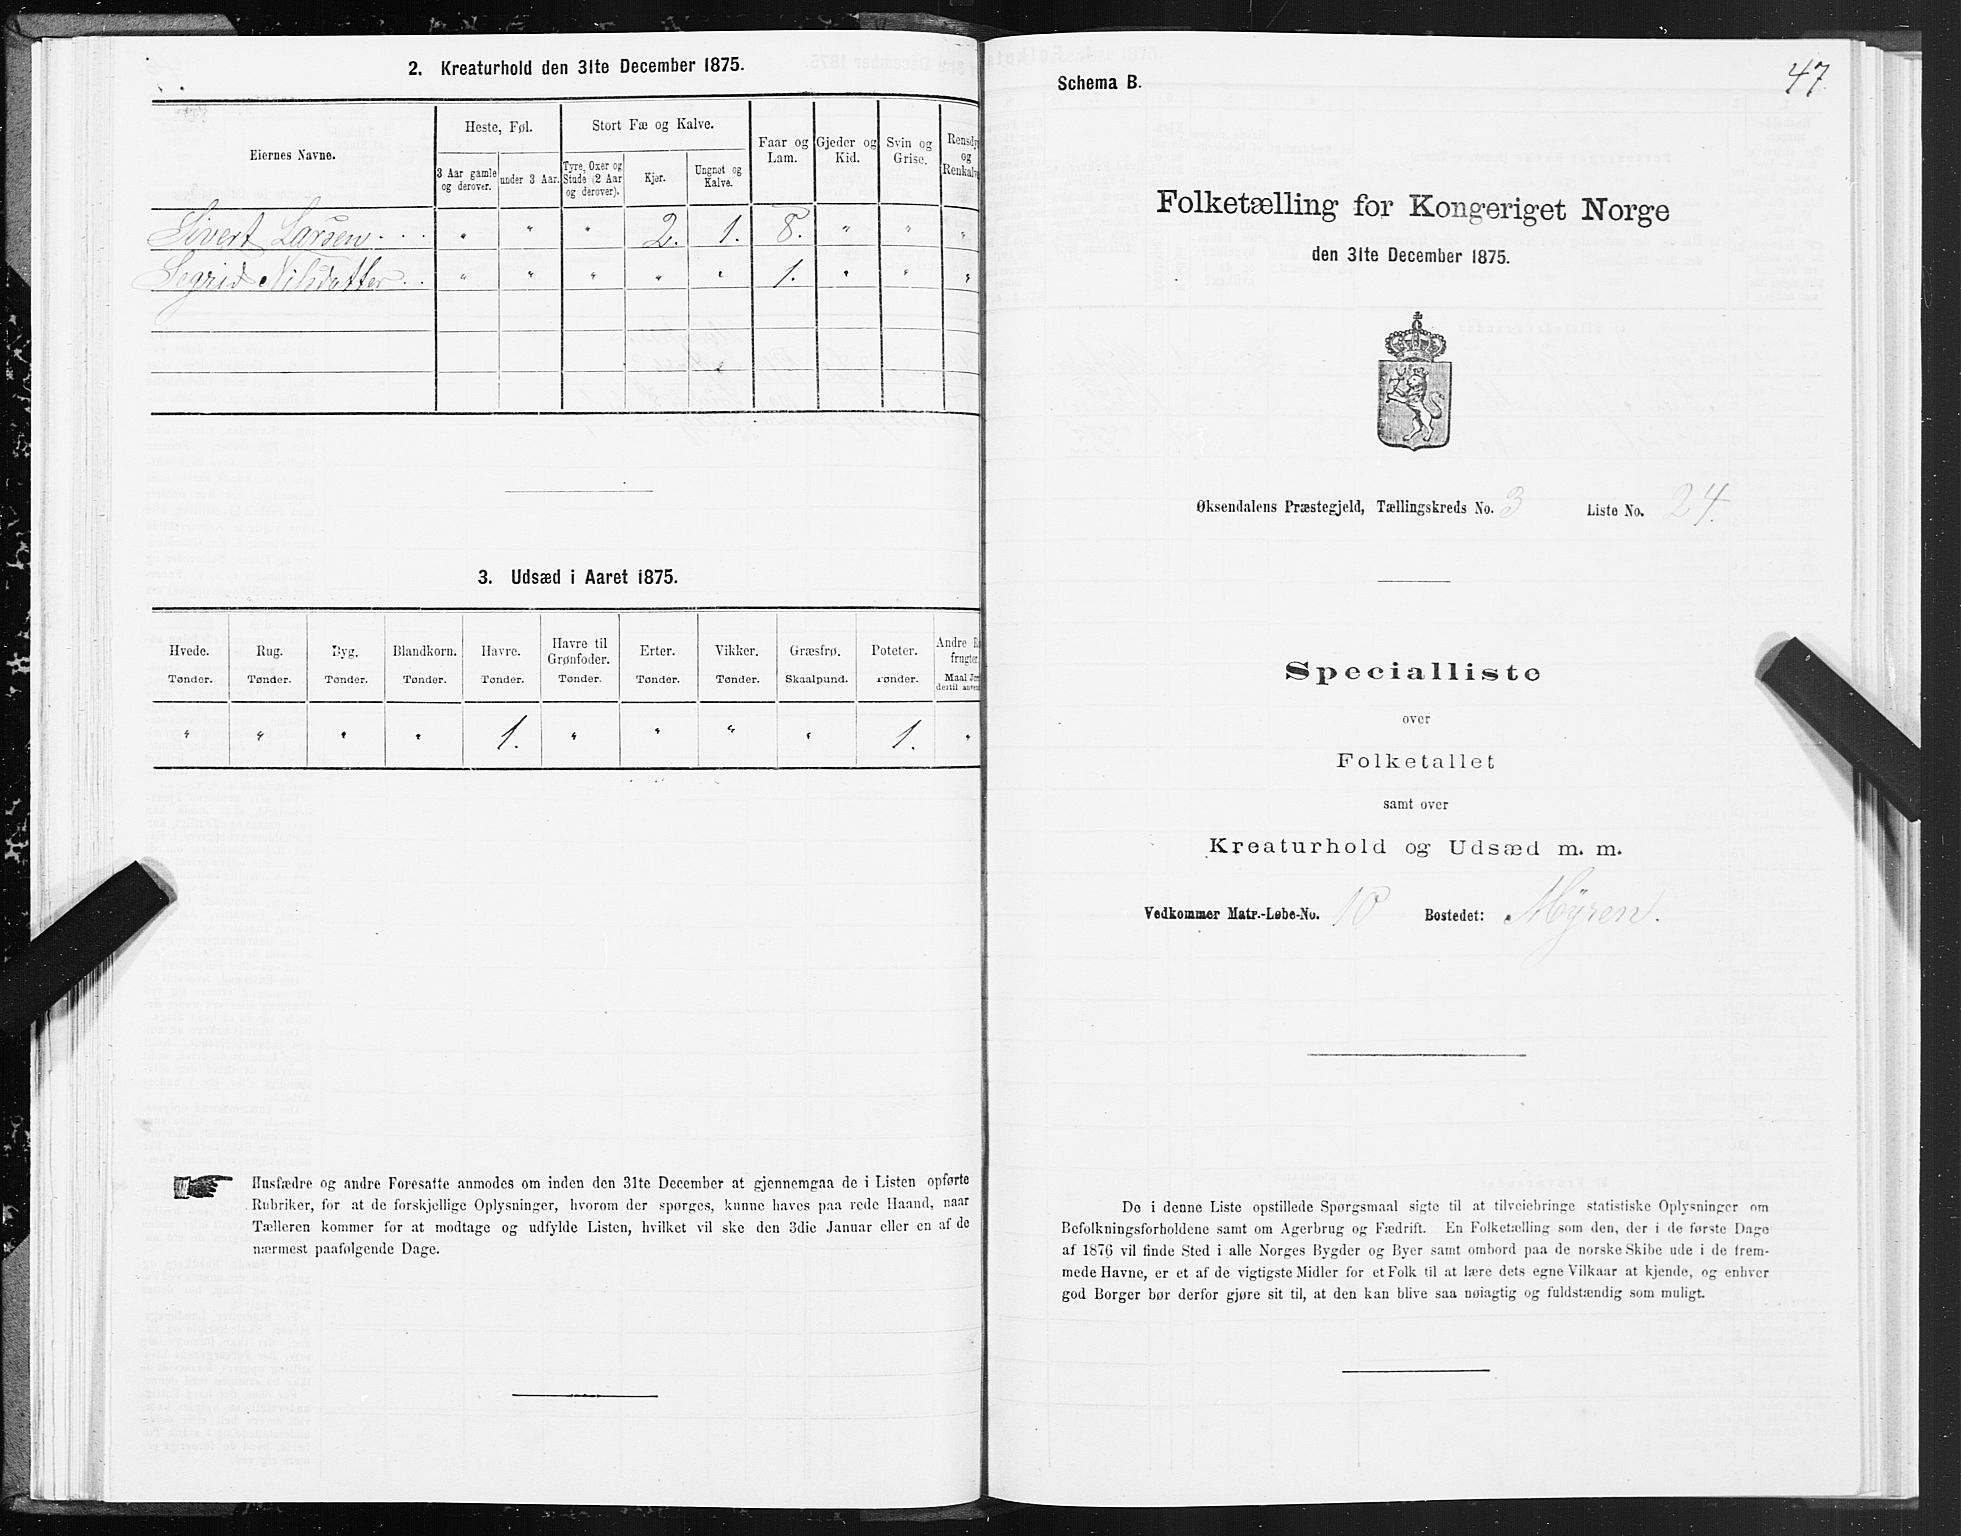 2. Kreaturhold den 31te December 1875.
Eiernes Navne.
Heste, Føl.
Stort Fæ og Kalve.
Faar og Lam.
Gjeder og Kid.
Svin og Grise.
Rensdyr og Renkalve
3 Aar gamle og derover.
under 3 Aar.
Tyre, Oxer og Stude (2 Aar og derover).
Kjør.
Ungnøt og Kalve.
Sivert Larsen . . . " " " 2. 1. 8. " " "
Segrid Nilsdatter . . " " " " " 1. " " "
3. Udsæd i Aaret 1875.
Hvede. Rug. Byg. Blandkorn. Havre. Havre til Grønfoder. Erter. Vikker. Græsfrø. Poteter. Andre
Tønder. Tønder. Tønder. Tønder. Tønder. Tønder. Tønder. Tønder. Skaalpund. Tønder. Maal
" " " " 1. " " " " 1. "
Husfædre og andre Foresatte anmodes om inden den 31te December at gjennemgaa de i Listen opførte
Rubriker, for at de forskjellige Oplysninger, hvorom der spørges, kunne haves paa rede Haand, naar
Tælleren kommer for at modtage og udfylde Listen, hvilket vil ske den 3die Januar eller en af de
nærmest paafølgende Dage.
47.
Schema B.
Folketælling for Kongeriget Norge
den 31te December 1875.
Øksendalens Præstegjeld, Tællingskreds No. 3 Liste No. 24.
Specialliste
over
Folketallet
samt over
Kreaturhold og Udsæd m. m.
Vedkommer Matr.-Løbe-No. 10 Bostedet: Myren.
De i denne Liste opstillede Spørgsmaal sigte til at tilveiebringe statistiske Oplysninger om
Befolkningsforholdene samt om Agerbrug og Fædrift. En Folketælling som den, der i de første Dage
af 1876 vil finde Sted i alle Norges Bygder og Byer samt ombord paa de norske Skibe ude i de frem-
mede Havne, er et af de vigtigste Midler for et Folk til at lære dets egne Vilkaar at kjende, og enhver
god Borger bør derfor gjøre sit til, at den kan blive saa nøiagtig og fuldstændig som muligt.